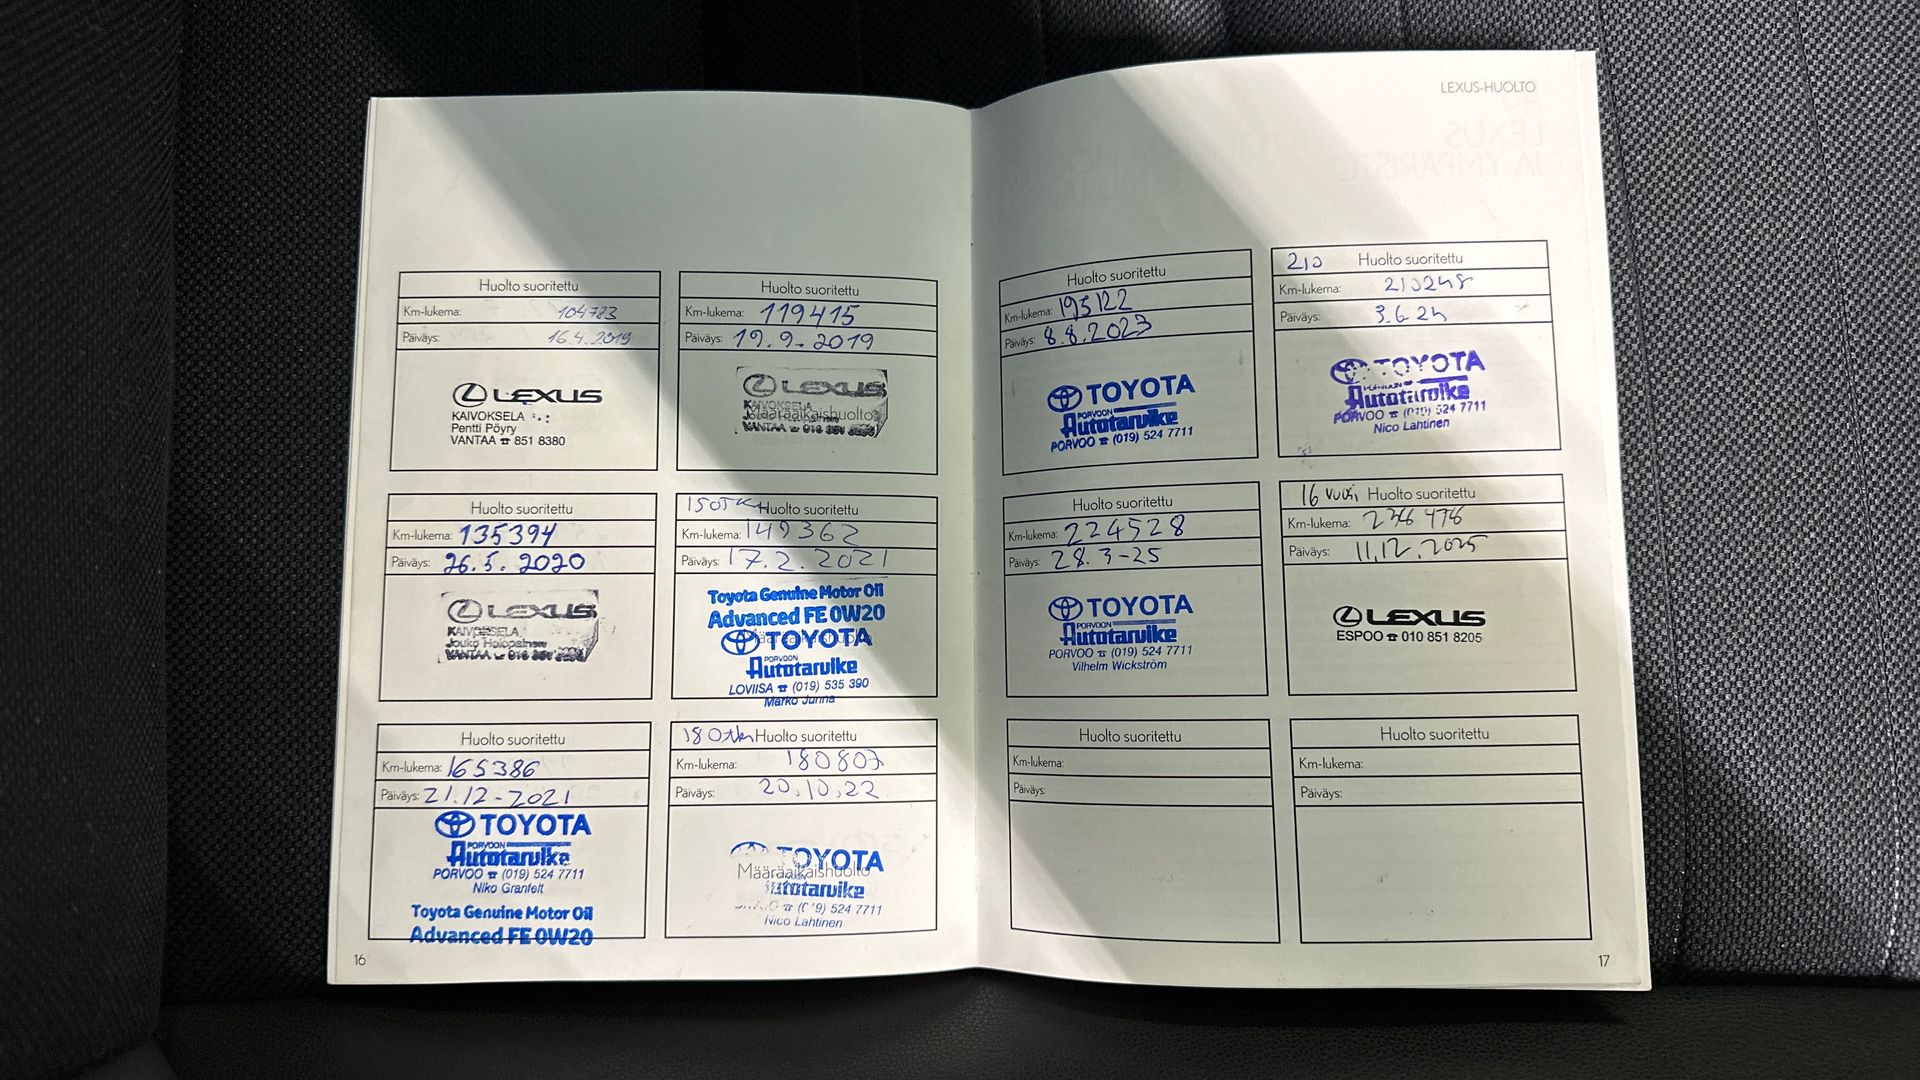 Huolto suoritettu
Km-lukema: 104783
Päiväys: 16.4.2019
LEXUS
KAIVOKSELA
Pentti Pöyry
VANTAA ☎ 851 8380
Huolto suoritettu
Km-lukema: 119415
Päiväys: 19.9.2019
LEXUS
KAIVOKSELA
Määräaikaishuolto
VANTAA ☎
Huolto suoritettu
Km-lukema: 135394
Päiväys: 26.5.2020
LEXUS
KAIVOKSELA
Jouko Holopainen
VANTAA ☎
150TK Huolto suoritettu
Km-lukema: 149362
Päiväys: 17.2.2021
Toyota Genuine Motor Oil
Advanced FE 0W20
TOYOTA
PORVOON
Autotarvike
LOVIISA ☎ (019) 535 390
Marko Junna
Huolto suoritettu
Km-lukema: 165386
Päiväys: 21.12-2021
TOYOTA
PORVOON
Autotarvike
PORVOO ☎ (019) 524 7711
Niko Granfelt
Toyota Genuine Motor Oil
Advanced FE 0W20
Huolto suoritettu
Km-lukema: 180807
Päiväys: 20.10.22
TOYOTA
Määräaikaishuolto
Autotarvike
524 7711
Nico Lahtinen
16
LEXUS-HUOLTO
Huolto suoritettu
Km-lukema: 195122
Päiväys: 8.8.2023
TOYOTA
PORVOON
Autotarvike
PORVOO ☎ (019) 524 7711
210 Huolto suoritettu
Km-lukema: 210248
Päiväys: 3.6.24
TOYOTA
PORVOON
Autotarvike
PORVOO ☎ (019) 524 7711
Nico Lahtinen
Huolto suoritettu
Km-lukema: 224528
Päiväys: 28.3-25
TOYOTA
PORVOON
Autotarvike
PORVOO ☎ (019) 524 7711
Vilhelm Wickström
16 vuosi Huolto suoritettu
Km-lukema: 236478
Päiväys: 11.12.2025
LEXUS
ESPOO ☎ 010 851 8205
Huolto suoritettu
Km-lukema:
Päiväys:
Huolto suoritettu
Km-lukema:
Päiväys:
17